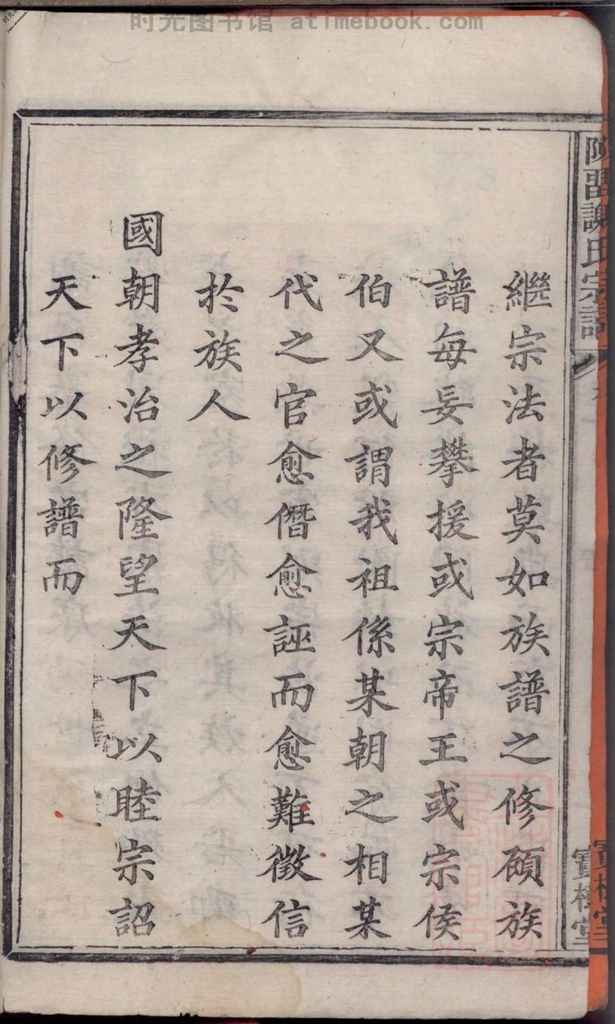 时光图书馆 atimebook.com
陳留謝氏宗譜
寶樹堂
繼宗法者莫如族譜之修碩族
譜每妄攀援或宗帝王或宗侯
伯又或謂我祖係某朝之相某
代之官愈僭愈誣而愈難徵信
扵族人
國朝孝治之隆望天下以睦宗詔
天下以修譜而